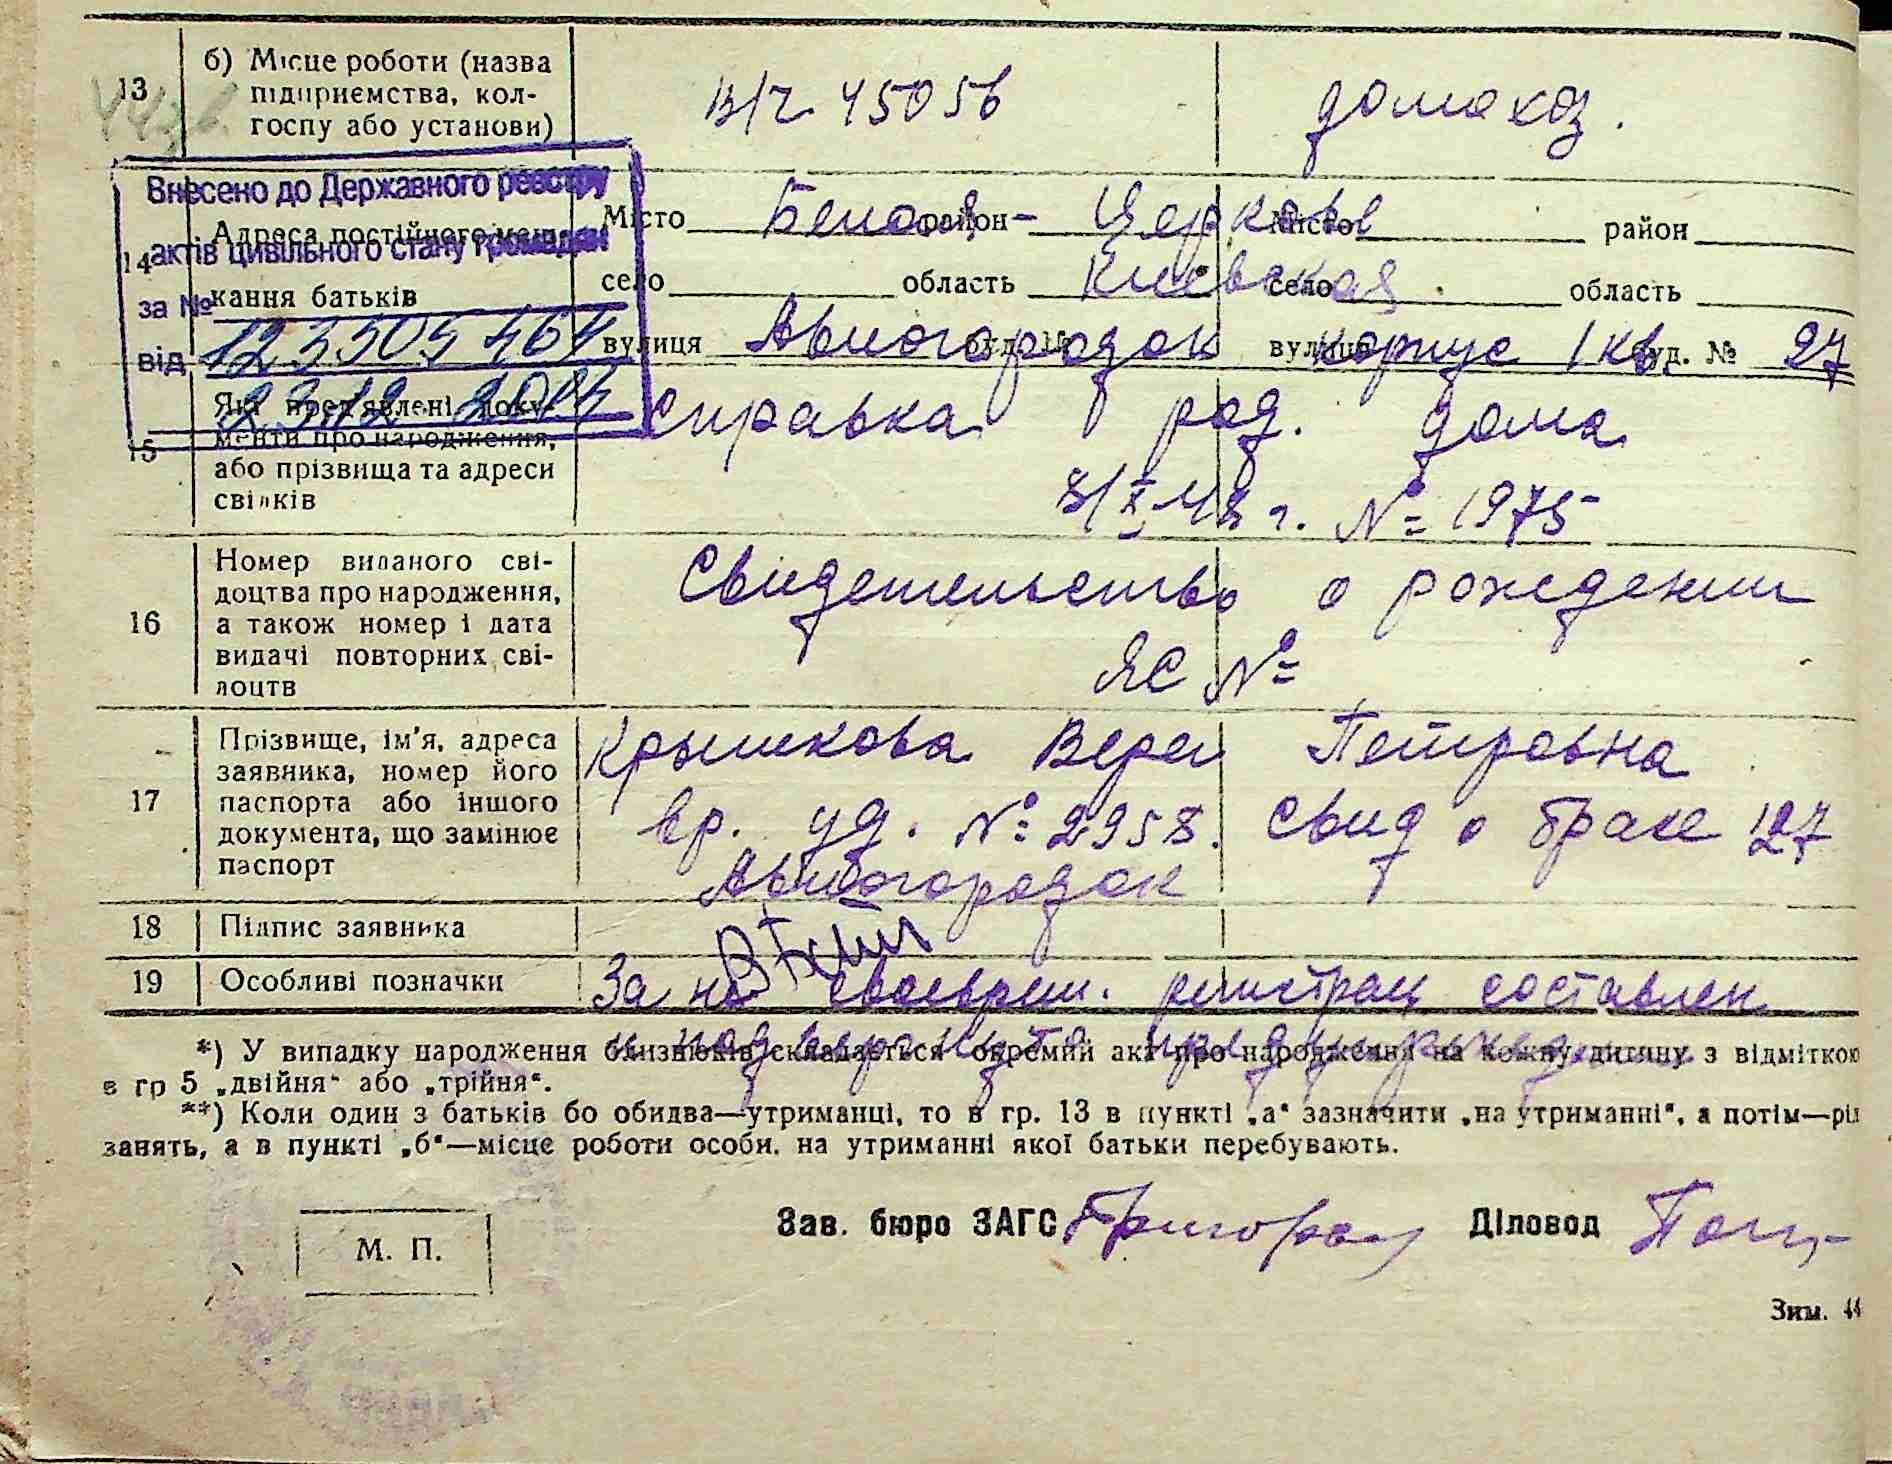 13
б) Місце роботи (назва
підприємства, кол-
госпу або установи)
в/ч 45056
домохоз.
Внесено до Державного реєстру
актів цивільного стану громадян
за № 123505464
від 23.12.
14
Адреса постійного меш-
кання батьків
Місто Белая - Церковь район Місто район
село область Киевская село область
вулиця Авиогородок буд. № вулиця корпус 1 кв. буд. № 27
15
Які пред'явлені доку-
менти про народження,
або прізвища та адреси
свідків
Справка род. дома
№ 1975
16
Номер виданого сві-
доцтва про народження,
а також номер і дата
видачі повторних сві-
доцтв
Свидетельство о рождении
ЯС №
17
Прізвище, ім'я, адреса
заявника, номер його
паспорта або іншого
документа, що замінює
паспорт
Крышкова Вера Петровна
вр. уд. № 2958. Свид о браке 127
Авиогородок
18
Підпис заявника
19
Особливі позначки
За не своеврем. регистрац составлен
*) У випадку народження близнюків складається окремий акт про народження на кожну дитину з відміткою
в гр 5 „двійня“ або „трійня“.
**) Коли один з батьків бо обидва—утриманці, то в гр. 13 в пункті „а“ зазначити „на утриманні“, а потім—рід
занять, а в пункті „б“—місце роботи особи, на утриманні якої батьки перебувають.
М. П.
Зав. бюро ЗАГС
Діловод
Зим. 44